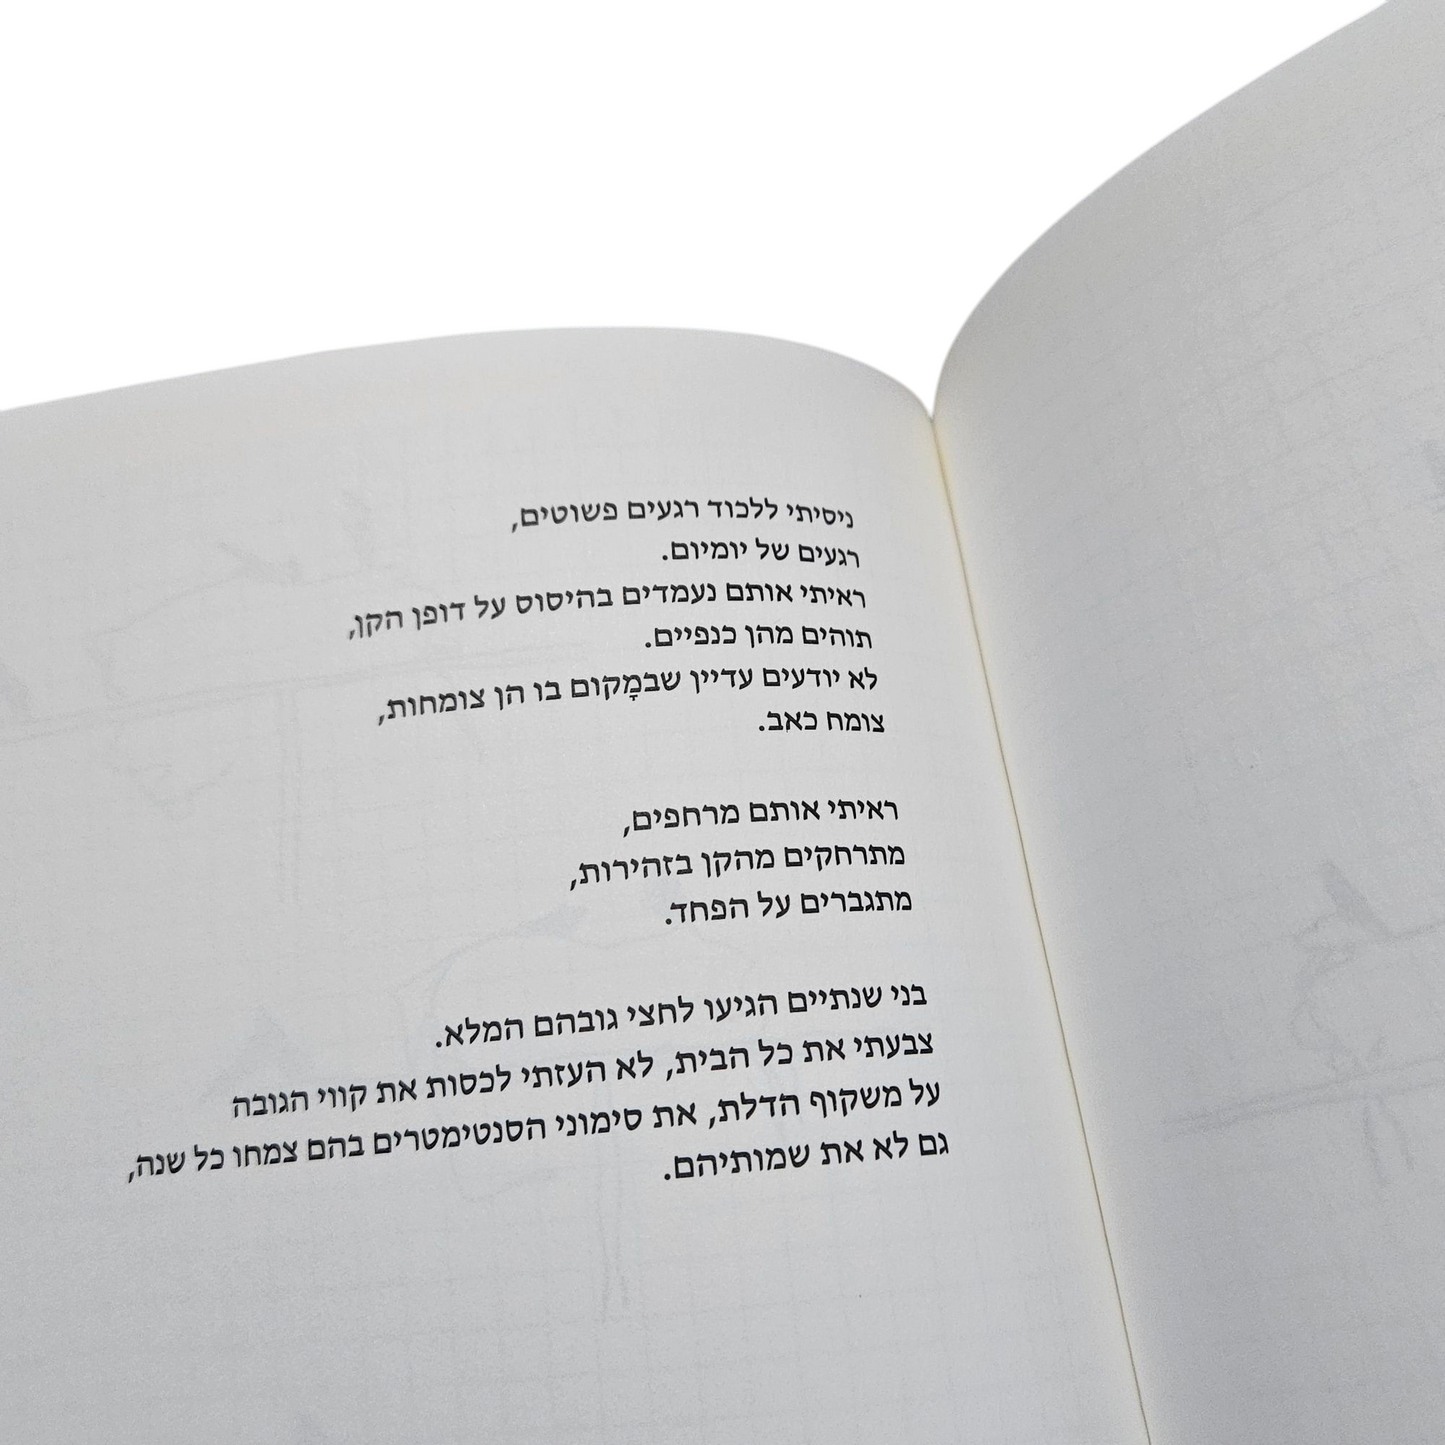 ניסיתי ללכוד רגעים פשוטים,
רגעים של יומיום.
ראיתי אותם נעמדים בהיסוס על דופן הקן,
תוהים מהן כנפיים.
לא יודעים עדיין שבמָקום בו הן צומחות,
צומח כאב.
ראיתי אותם מרחפים,
מתרחקים מהקן בזהירות,
מתגברים על הפחד.
בני שנתיים הגיעו לחצי גובהם המלא.
צבעתי את כל הבית, לא העזתי לכסות את קווי הגובה
על משקוף הדלת, את סימוני הסנטימטרים בהם צמחו כל שנה,
גם לא את שמותיהם.